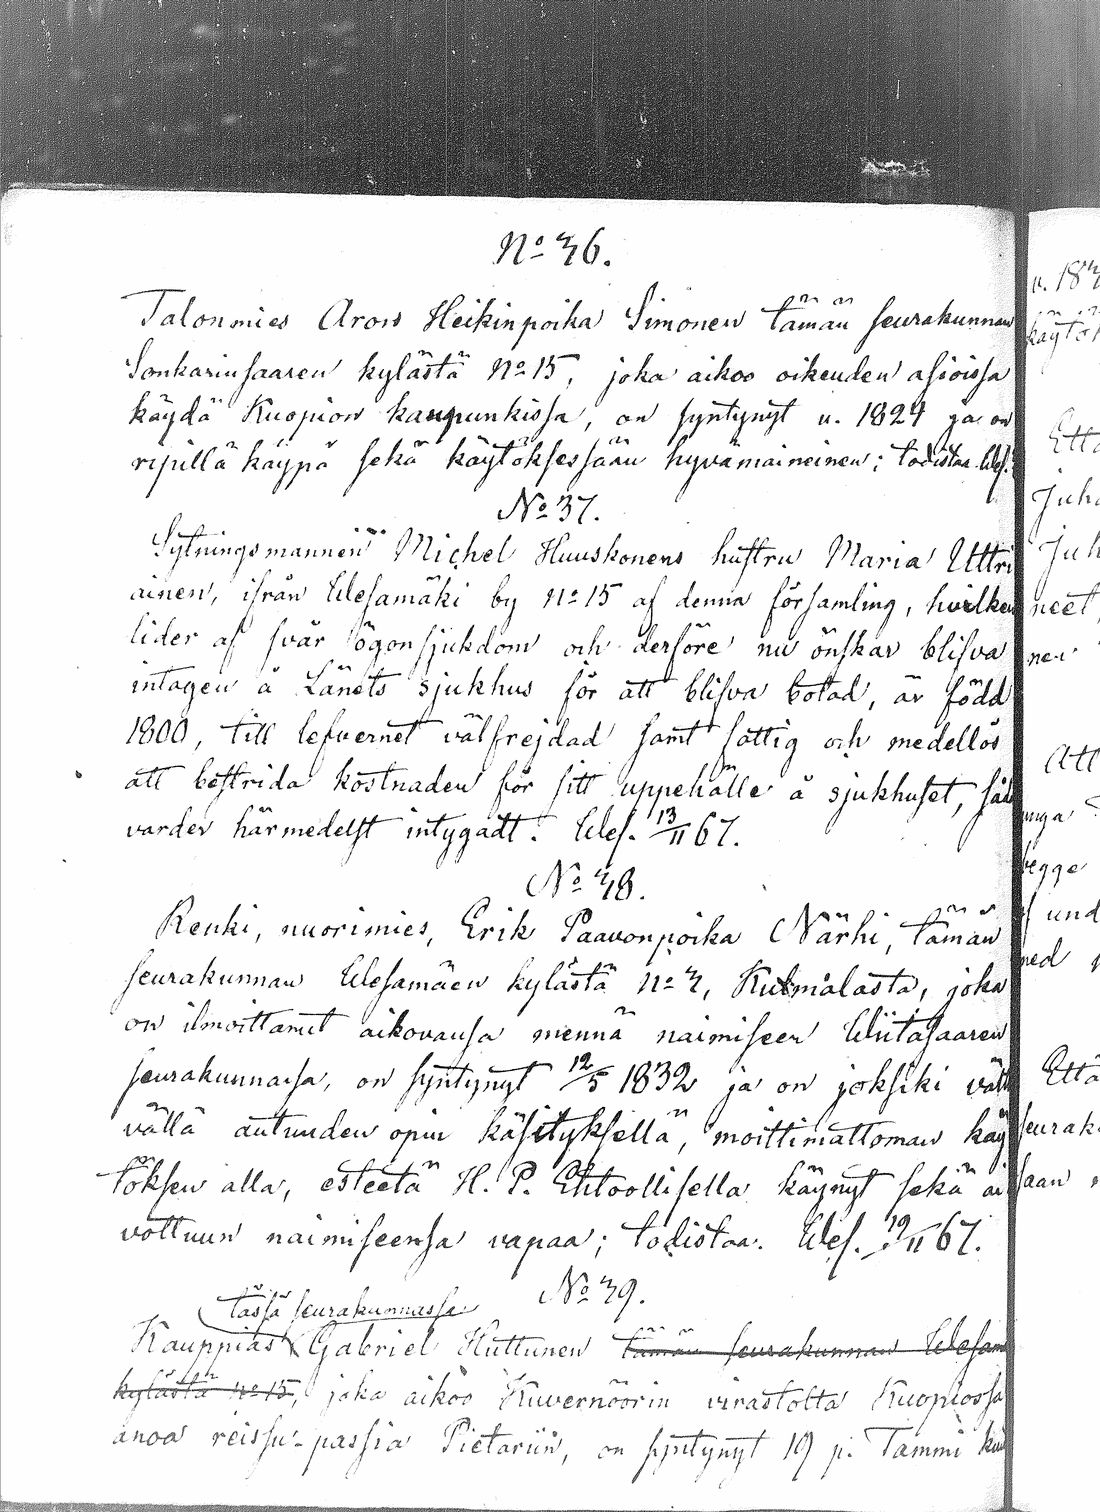 No 36.
Talonmies Aron Heikinpoika Simonen tämän seurakunnan
Sonkarinsaaren kylästä No 15, joka aikoo oikeuden asioissa
käydä Kuopion kaupunkissa, on syntynyt v. 1824 ja on
ripillä käypä sekä käytöksessään hyvämaineinen; todistaa Wes.
No 37.
Sytningsmannen Michel Huuskonens hustru Maria Uttri
ainen, ifrån Wesamäki by No 15 af denna församling, hvilken
lider af svår ögonsjukdom och derföre nu önskar blifva
intagen å Länets sjukhus för att blifva botad, är född
1800, till lefvernet välfrejdad samt fattig och medellös
att bestrida kostnaden för sitt uppehälle å sjukhuset, så
varder härmedelst intygadt. Wes. 13/II 67.
No 38.
Renki, nuorimies, Erik Paavonpoika Närhi, tämän
seurakunnan Wesamäen kylästä No 3, Kulmalasta, joka
on ilmoittanut aikovansa mennä naimiseen Wiitasaaren
seurakunnassa, on syntynyt 12/5 1832 ja on joksiki vält
vällä autuuden opin käsityksellä, moittimattoman käy
töksen alla, esteetä H. P. Ehtoollisella käynyt sekä ai
vottuun naimiseensa vapaa; todistaa. Wes. 19/II 67.
No 39.
tässä seurakunnassa
Kauppias Gabriel Huttunen tämän seurakunnan Wesam
kylästä No 15, joka aikoo Kuvernöörin virastolta Kuopiossa
anoa reissu-passia Pietariin, on syntynyt 19 p. Tammi kuu